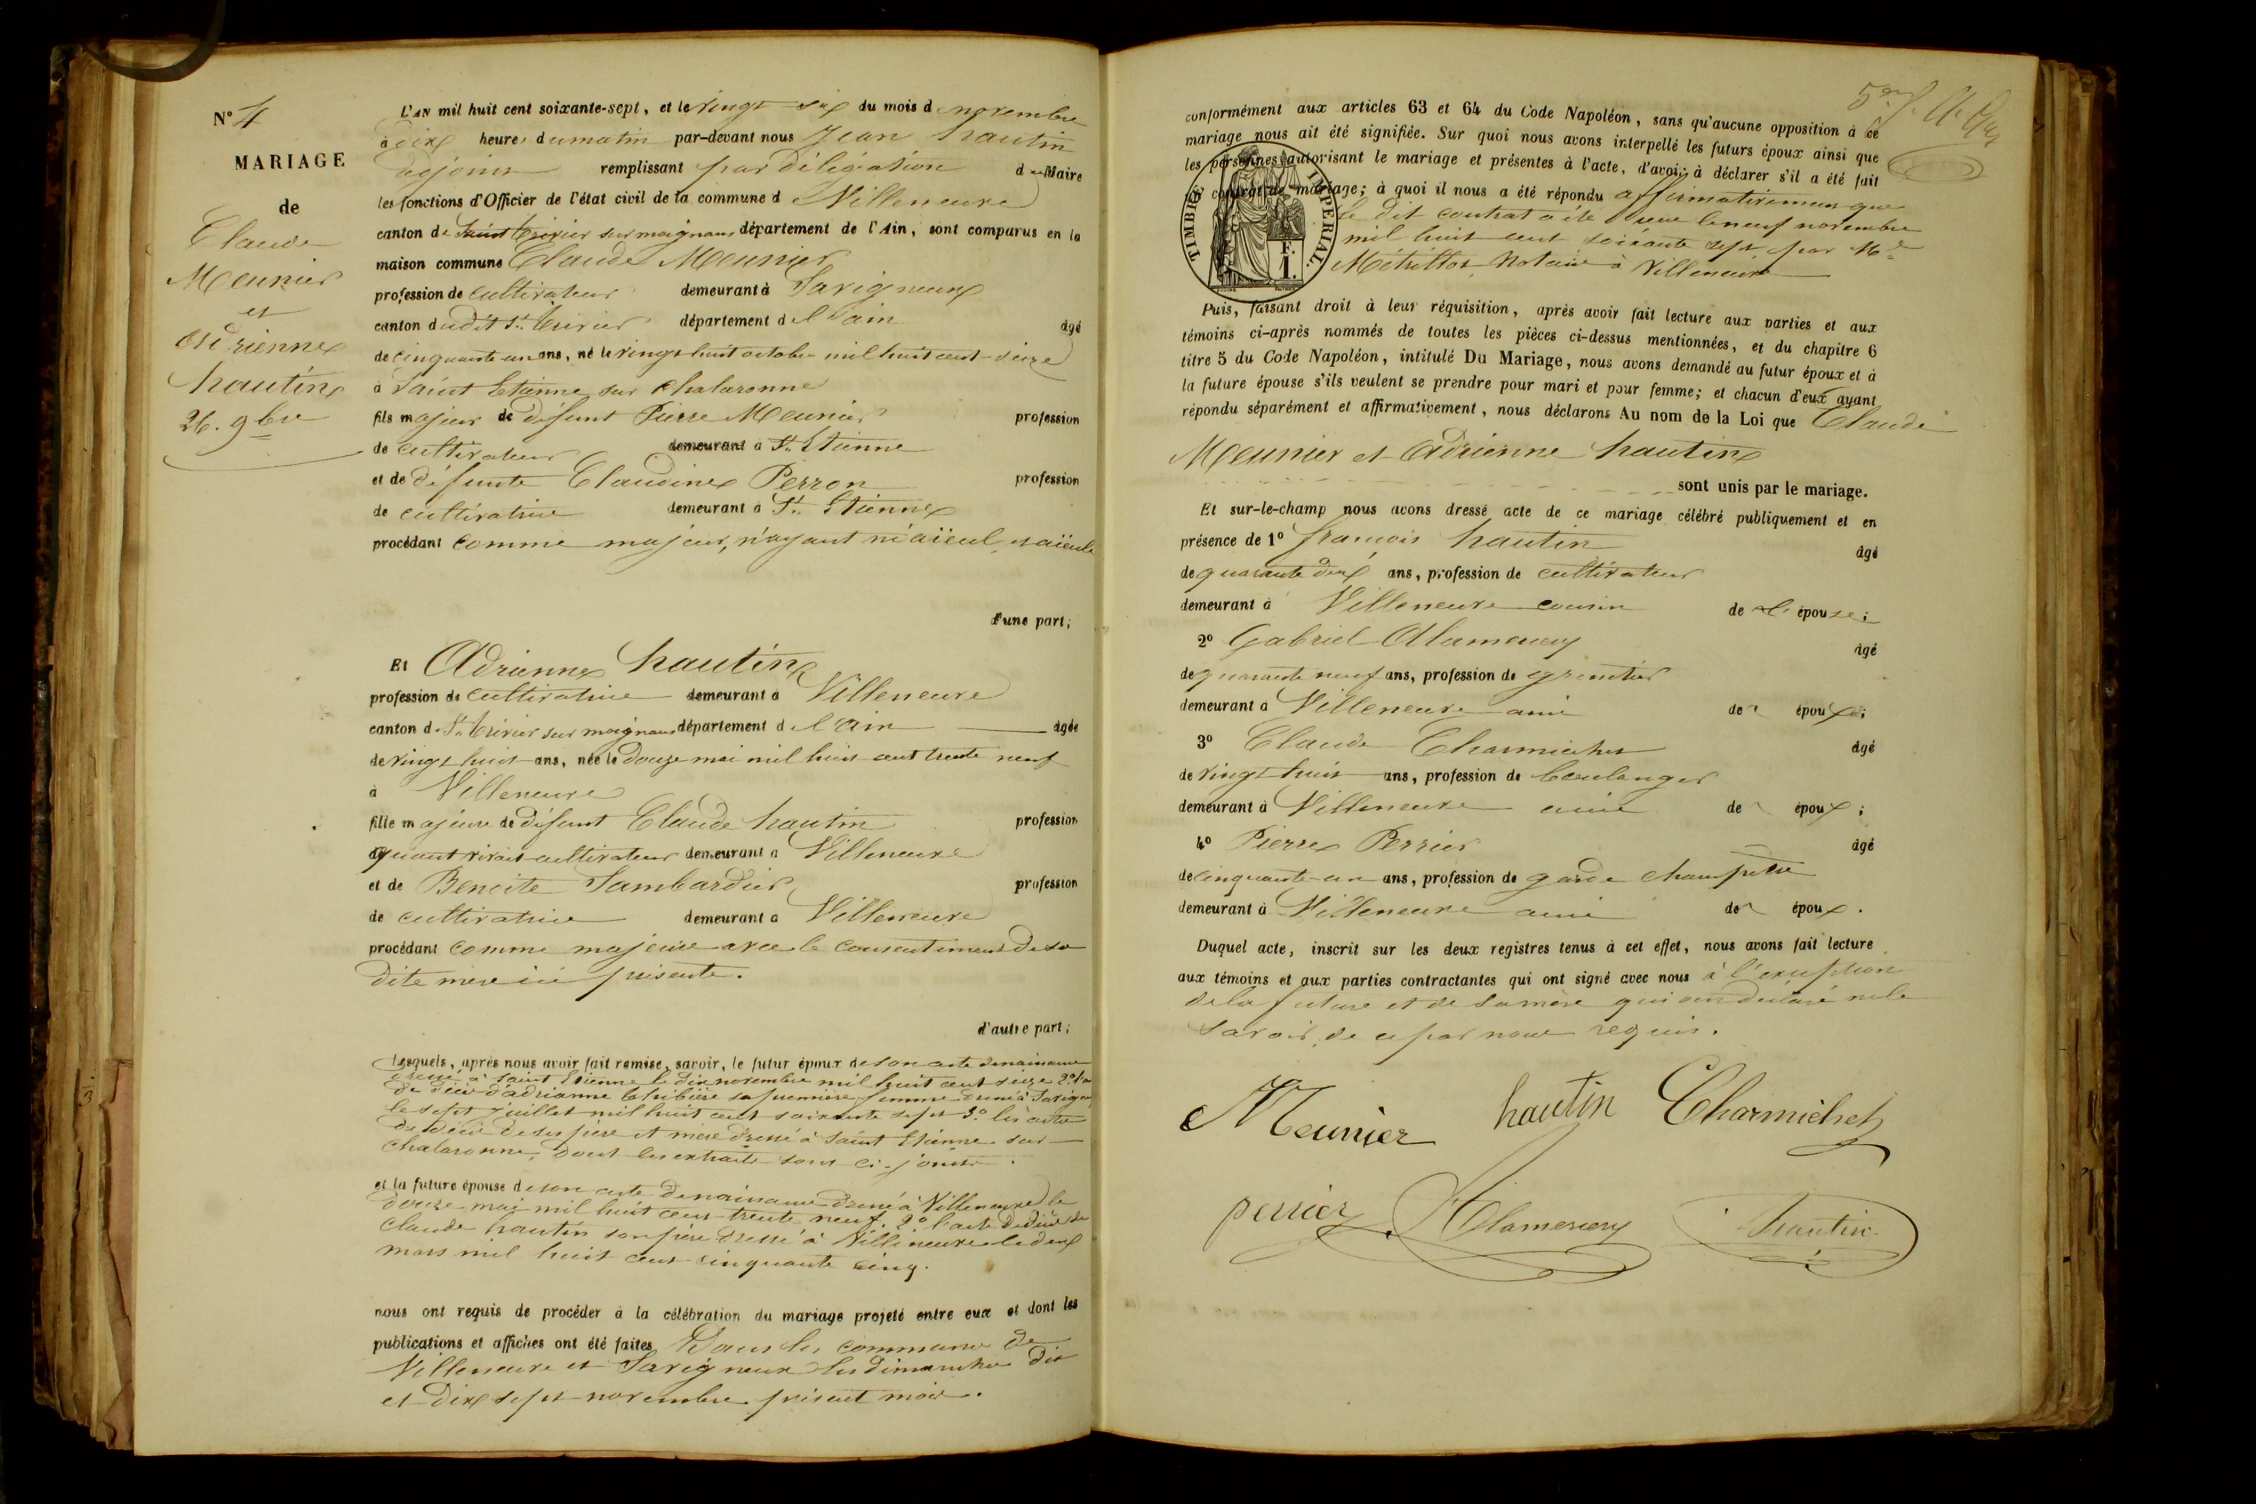 N° 4
MARIAGE
de
Claude
Meunier
et
Adrienne
hautin
26. 9bre
L'AN mil huit cent soixante-sept, et le vingt six du mois de novembre
à dix heures du matin par-devant nous Jean hautin
adjoint remplissant par délégation du Maire
les fonctions d'Officier de l'état civil de la commune de Villeneuve
canton de Saint trivier sur moignans département de l'Ain, sont comparus en la
maison commune Claude Meunier
profession de cultivateur demeurant à Savigneux
canton dudit St. trivier département de l'ain âgé
de cinquante un ans, né le vingt huit octobre mil huit cent seize
à Saint Etienne sur Chalaronne
fils majeur de défunt Pierre Meunier profession
de cultivateur demeurant à St. Etienne
et de défunte Claudine Perron profession
de cultivatrice demeurant à St. Etienne
procédant comme majeur, n'ayant ni aïeul, ni aïeule
d'une part;
Et Adrienne hautin
profession de cultivatrice demeurant à Villeneuve
canton de St. trivier sur moignans département de l'ain âgée
de vingt huit ans, née le douze mai mil huit cent trente neuf
à Villeneuve
fille majeure de défunt Claude hautin profession
quant vivait cultivateur demeurant à Villeneuve
et de Benoite Sambardier profession
de cultivatrice demeurant à Villeneuve
procédant comme majeure avec le consentement de sa
dite mère ici présente.
d'autre part;
Lesquels, après nous avoir fait remise, savoir, le futur époux de son acte de naissance
dressé à Saint Etienne le dix novembre mil huit cent seize 2°
de décès d'adrianne sa première femme dressé à
le sept juillet mil huit cent soixante sept 3° les actes
de décès de ses père et mère dressé à Saint Etienne sur
chalaronne, dont les extraits sont ci-joints.
et la future épouse de son acte de naissance dressé à Villeneuve le
douze mai mil huit cent trente neuf. 2° l'acte de décès de
Claude hautin son père dressé à Villeneuve le deux
mars mil huit cent cinquante cinq.
nous ont requis de procéder à la célébration du mariage projeté entre eux et dont les
publications et affiches ont été faites Dans les communes de
Villeneuve et Savigneux les dimanches dix
et dix sept novembre présent mois.
conformément aux articles 63 et 64 du Code Napoléon, sans qu'aucune opposition à ce
mariage nous ait été signifiée. Sur quoi nous avons interpellé les futurs époux ainsi que
les personnes autorisant le mariage et présentes à l'acte, d'avoir à déclarer s'il a été fait
un contrat de mariage; à quoi il nous a été répondu affirmativement que
le dit contrat a été reçu le neuf novembre
mil huit cent soixante sept par Me
Notaire à Villeneuve
TIMBRE IMPERIAL.
F.
1.
Puis, faisant droit à leur réquisition, après avoir fait lecture aux parties et aux
témoins ci-après nommés de toutes les pièces ci-dessus mentionnées, et du chapitre 6
titre 5 du Code Napoléon, intitulé Du Mariage, nous avons demandé au futur époux et à
la future épouse s'ils veulent se prendre pour mari et pour femme; et chacun d'eux ayant
répondu séparément et affirmativement, nous déclarons Au nom de la Loi que Claude
Meunier et Adrienne hautin
sont unis par le mariage.
Et sur-le-champ nous avons dressé acte de ce mariage célébré publiquement et en
présence de 1° françois hautin âgé
de quarante deux ans, profession de cultivateur
demeurant à Villeneuve cousin de l'épouse;
2° Gabriel Alamercery âgé
de quarante neuf ans, profession de
demeurant à Villeneuve ami de époux;
3° Claude Charmichet âgé
de vingt huit ans, profession de boulanger
demeurant à Villeneuve ami de époux;
4° Pierre Perrier âgé
de cinquante un ans, profession de garde champêtre
demeurant à Villeneuve ami de époux.
Duquel acte, inscrit sur les deux registres tenus à cet effet, nous avons fait lecture
aux témoins et aux parties contractantes qui ont signé avec nous à l'exception
de la future et de sa mère qui ont déclaré ne le
savoir, de ce par nous requis.
Meunier hautin Charmichet
perrier Alamercery hautin